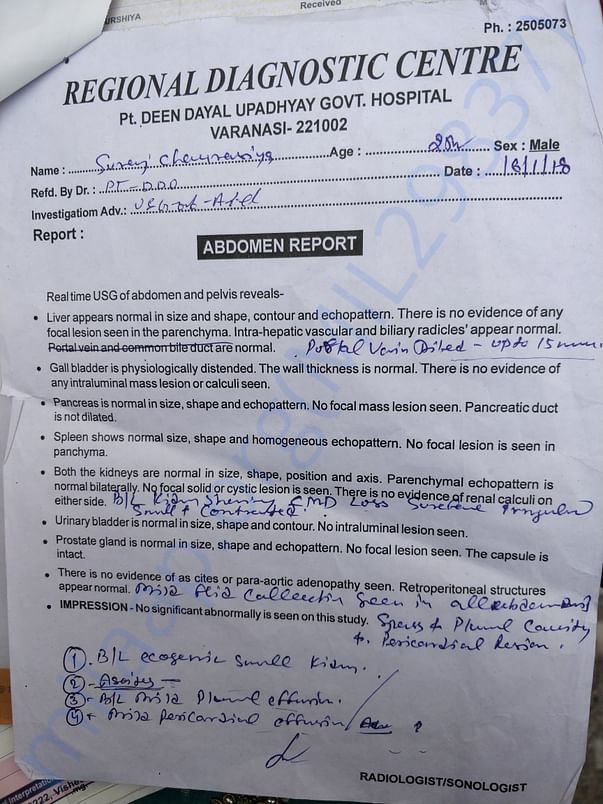 URSHIYA
Received
Ph. : 2505073
REGIONAL DIAGNOSTIC CENTRE
Pt. DEEN DAYAL UPADHYAY GOVT. HOSPITAL
VARANASI- 221002
Name : Suraj Chaurasiya Age : Sex : Male
Refd. By Dr. : PT-DDO Date : 18/1/18
Investigatiom Adv.:
Report :
ABDOMEN REPORT
Real time USG of abdomen and pelvis reveals-
• Liver appears normal in size and shape, contour and echopattern. There is no evidence of any
focal lesion seen in the parenchyma. Intra-hepatic vascular and biliary radicles' appear normal.
Portal vein and common bite duct are normal. Portal Vein Dilted - upto 15 mm.
• Gall bladder is physiologically distended. The wall thickness is normal. There is no evidence of
any intraluminal mass lesion or calculi seen.
• Pancreas is normal in size, shape and echopattern. No focal mass lesion seen. Pancreatic duct
is not dilated.
• Spleen shows normal size, shape and homogeneous echopattern. No focal lesion is seen in
panchyma.
• Both the kidneys are normal in size, shape, position and axis. Parenchymal echopattern is
normal bilaterally. No focal solid or cystic lesion is seen. There is no evidence of renal calculi on
either side. B/L Kidny Showing CMD Loss Surface Irregular
Small & Contracted.
• Urinary bladder is normal in size, shape and contour. No intraluminal lesion seen.
• Prostate gland is normal in size, shape and echopattern. No focal lesion seen. The capsule is
intact.
• There is no evidence of as cites or para-aortic adenopathy seen. Retroperitoneal structures
appear normal. Mild fluid Collection Seen in all abdominal
• IMPRESSION - No significant abnormally is seen on this study. Spaces & Plural Cavity
& Pericardial Resion.
① B/L ecogenic small Kidny.
② - Ascites -
③ - B/L Mild Plural effusion.
④ + Mild Pericardial effusion
RADIOLOGIST/SONOLOGIST